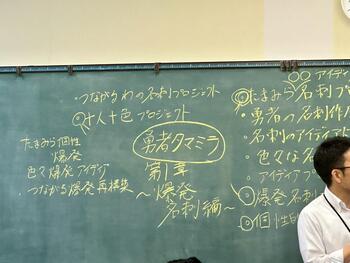 ・つながるわの名刺プロジェクト
十人十色プロジェクト
勇者タマミラ
第1章
〜爆発
名刺編〜
たまみら個性
爆発
色々爆発アイデア
・つながる爆発再構築
〇〇アイディ
たまみら名刺プ
・勇者の名刺作
・名刺のアイディア
・色々な名
アイディア
爆発名刺
個性的